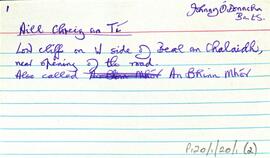 1
Johnny O Donncha
Ba.t.S.
Aill Chreig an Tí
Low cliff on W side of Beal an Chalaidh,
near opening of the road.
Also called An Bhinn Mhór An Bhinn Mhór
P120/1/20/1 (2)